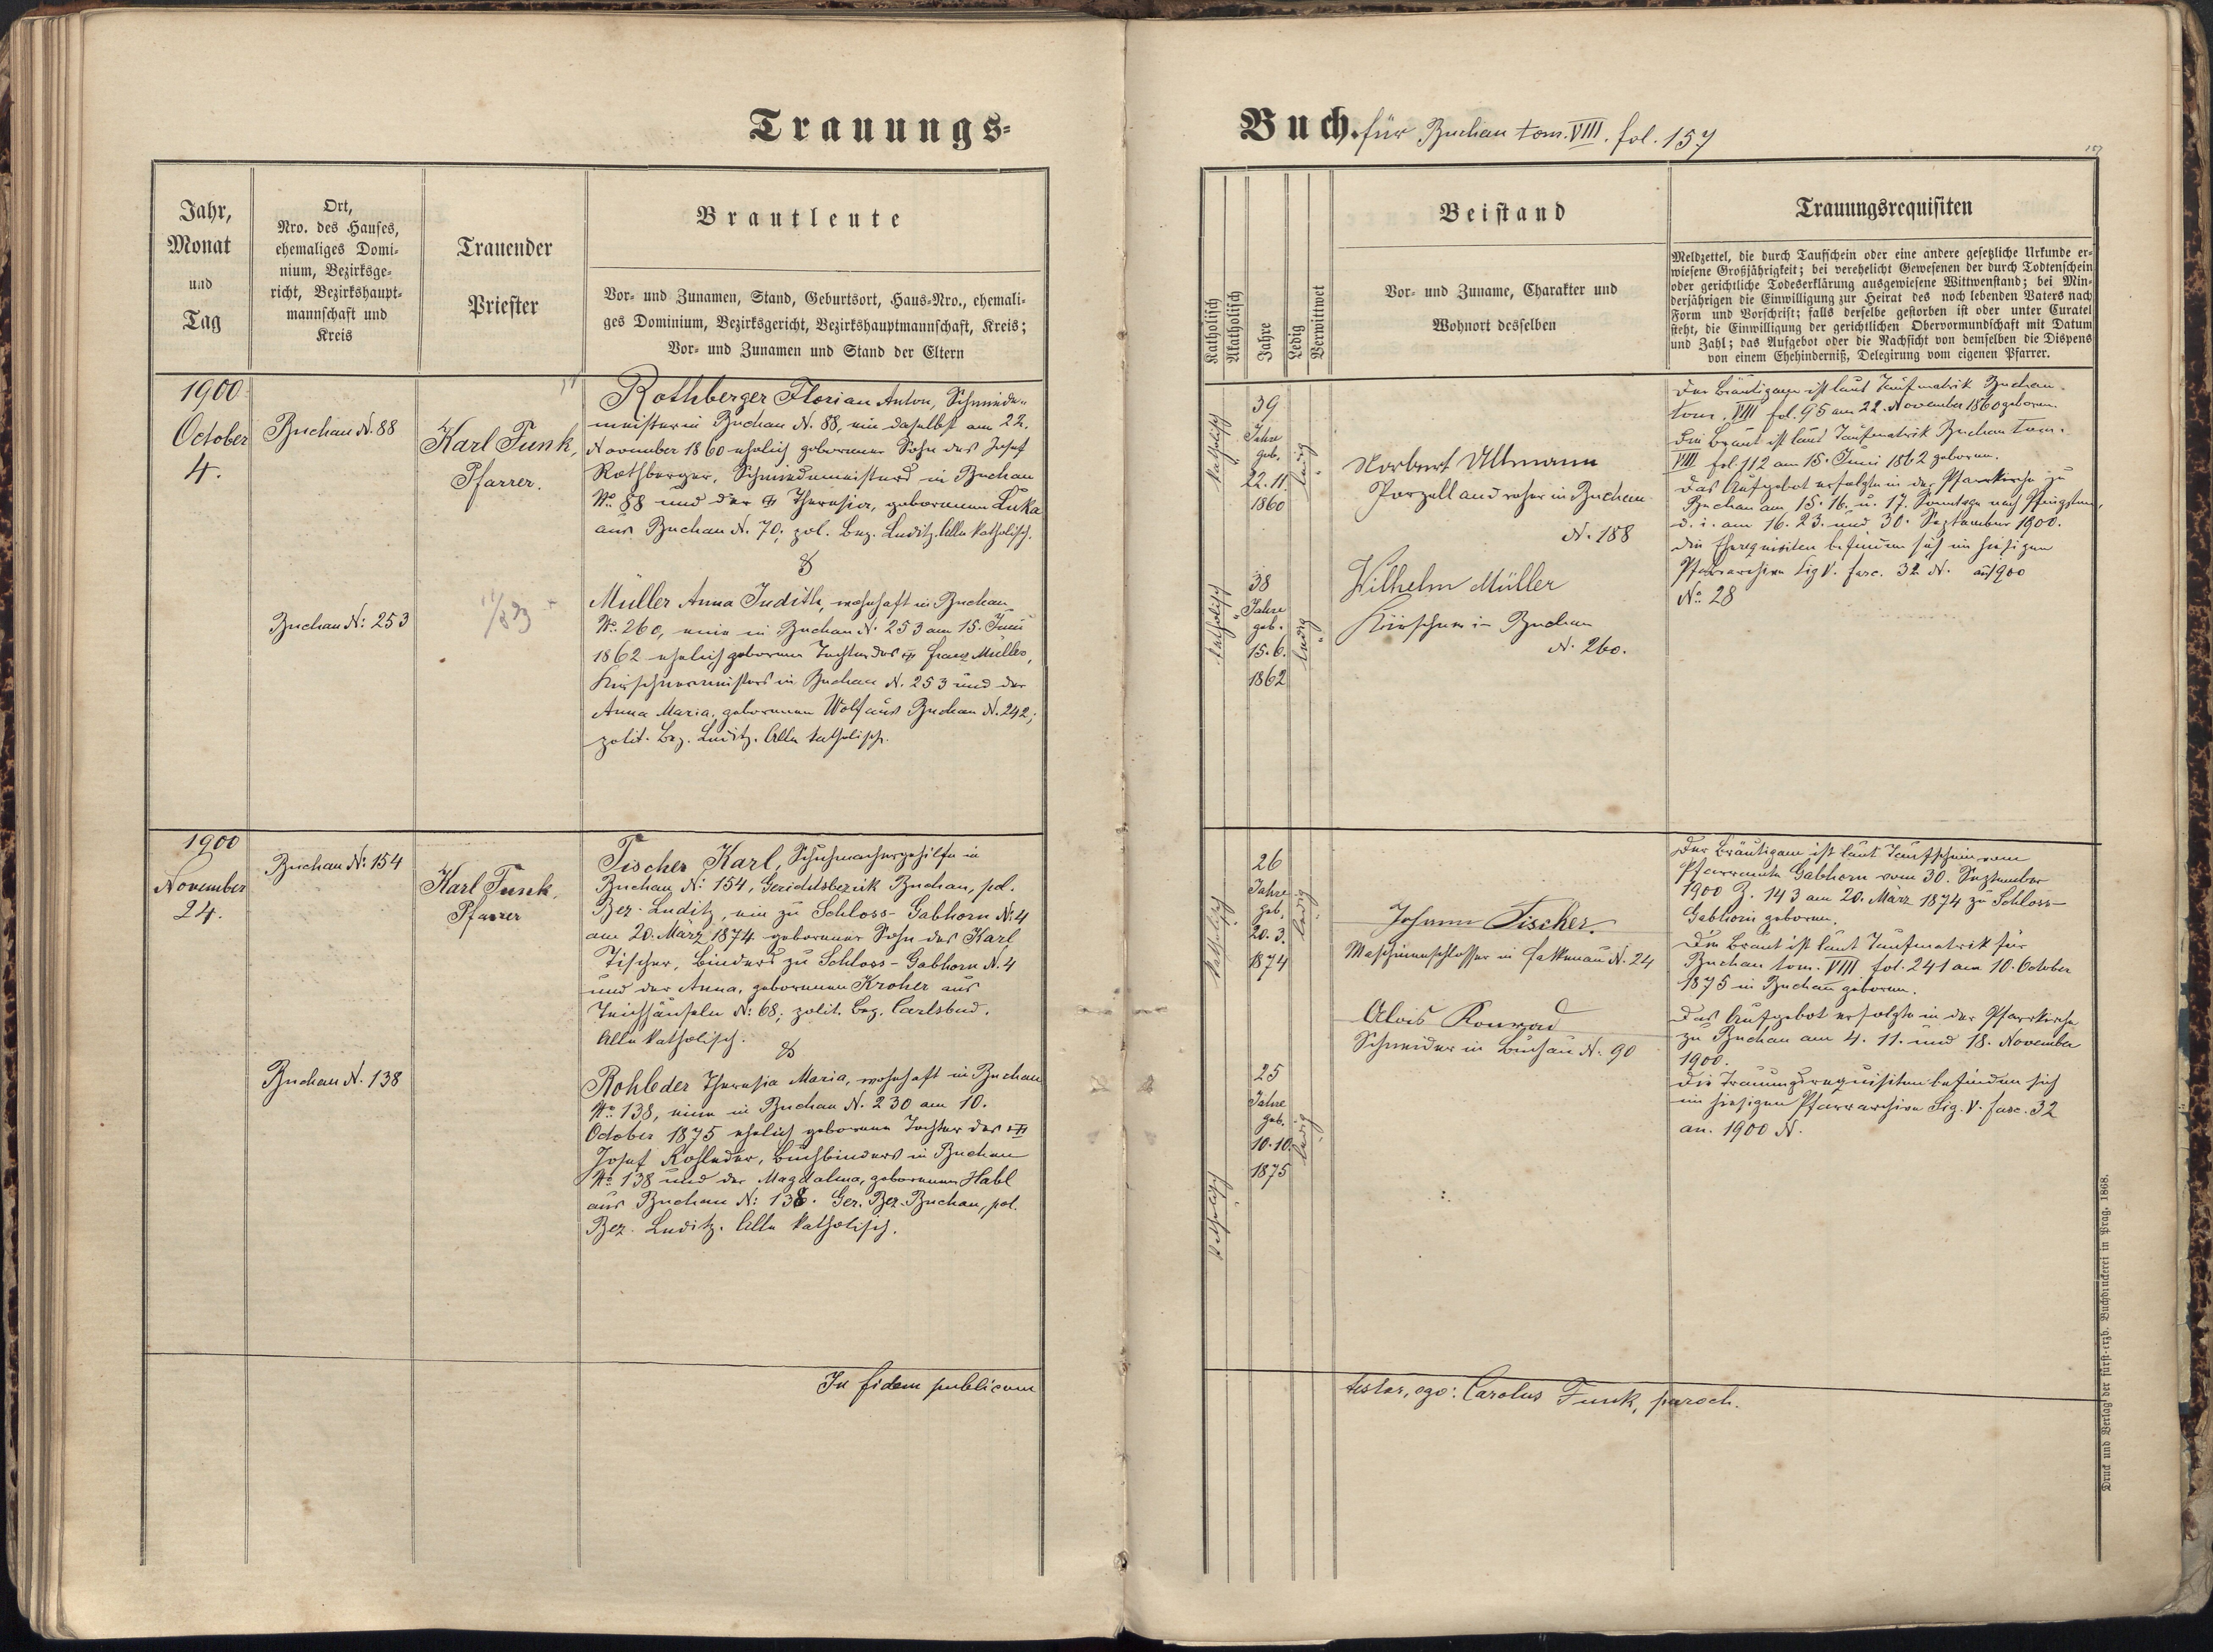 Trauungs-
Jahr,
Monat
und
Tag
Ort,
Nro. des Hauses,
ehemaliges Domi-
nium, Bezirksge-
richt, Bezirkshaupt-
mannschaft und
Kreis
Trauender
Priester
Brautleute
Vor- und Zunamen, Stand, Geburtsort, Haus-Nro., ehemali-
ges Dominium, Bezirksgericht, Bezirkshauptmannschaft, Kreis;
Vor- und Zunamen und Stand der Eltern
1900
October
4.
Buchau N. 88
Karl Funk,
Pfarrer.
Rothberger Florian Anton, Schmiede-
meister in Buchau N. 88, ein daselbst am 22.
November 1860 ehelich geborener Sohn des Josef
Rothberger, Schmiedemeisters in Buchau
No. 88 und der Theresia, geborenen Luka
aus Buchau N. 70, pol. Bez. Luditz. Alle katholisch.
&
Buchau N: 253
Müller Anna Judith, wohnhaft in Buchau
No. 260, eine in Buchau N. 253 am 15. Juni
1862 ehelich geborene Tochter des Franz Müller,
Kirschnermeisters in Buchau N. 253 und der
Anna Maria, geborenen Wolf aus Buchau N. 242;
polit. Bez. Luditz. Alle katholisch.
1900
November
24.
Buchau N: 154
Karl Funk,
Pfarrer
Tischer Karl, Schuhmachergehilfe in
Buchau N: 154, Gerichtsbezirk Buchau, pol.
Bez. Luditz, ein zu Schloss-Gabhorn N: 4
am 20. März 1874 geborener Sohn des Karl
Tischer, Binders zu Schloss-Gabhorn N. 4
und der Anna, geborenen Kroher aus
Teichhäuseln N: 68; polit. Bez. Carlsbad.
Alle katholisch.
&
Buchau N. 138
Rohleder Theresia Maria, wohnhaft in Buchau
No. 138, eine in Buchau N. 230 am 10.
October 1875 ehelich geborene Tochter des
Josef Rohleder, Buchbinders in Buchau
No 138 und der Magdalena, geborenen Habl
aus Buchau N: 138. Ger. Bez. Buchau, pol.
Bez. Luditz. Alle katholisch.
In fidem publicam
Buch. für Buchau tom. VIII. fol. 157
157
Katholisch
Akatholisch
Jahre
Ledig
Verwittwet
Beistand
Vor- und Zuname, Charakter und
Wohnort desselben
Trauungsrequisiten
Meldzettel, die durch Taufschein oder eine andere gesetzliche Urkunde er-
wiesene Großjährigkeit; bei verehelicht Gewesenen der durch Todtenschein
oder gerichtliche Todeserklärung ausgewiesene Wittwenstand; bei Min-
derjährigen die Einwilligung zur Heirat des noch lebenden Vaters nach
Form und Vorschrift; falls derselbe gestorben ist oder unter Curatel
steht, die Einwilligung der gerichtlichen Obervormundschaft mit Datum
und Zahl; das Aufgebot oder die Nachsicht von demselben die Dispens
von einem Ehehinderniß, Delegirung vom eigenen Pfarrer.
katholisch
39
Jahre
geb.
22. 11.
1860
ledig
Norbert Ullmann
Porzellandreher in Buchau
N. 188
Der Bräutigam ist laut Taufmatrik Buchau
tom. VIII fol. 95 am 22. November 1860 geboren.
Die Braut ist laut Taufmatrik Buchau tom.
VIII fol 112 am 15. Juni 1862 geboren.
Das Aufgebot erfolgte in der Pfarrkirche zu
Buchau am 15. 16. u. 17. Sonntage nach Pfingsten,
d. i. am 16. 23. und 30. September 1900.
Die Eherequisiten befinden sich im hiesigen
Pfarrarchive Sig V. fasc. 32 N. an 1900
No. 28
katholisch
38
Jahre
geb.
15. 6.
1862
ledig
Wilhelm Müller
Kirschner in Buchau
N. 260.
katholisch
26
Jahre
geb.
20. 3.
1874
ledig
Johann Tischer.
Maschinenschlosser in Falkenau N. 24
Alois Konrad
Schneider in Buchau N. 90
Der Bräutigam ist laut Taufschein vom
Pfarramte Gabhorn vom 30. September
1900 Z. 143 am 20. März 1874 zu Schloss-
Gabhorn geboren.
Die Braut ist laut Taufmatrik für
Buchau tom. VIII fol. 241 am 10. October
1875 in Buchau geboren.
Das Aufgebot erfolgte in der Pfarrkirche
zu Buchau am 4. 11. und 18. November
1900.
Die Trauungsrequisiten befinden sich
im hiesigen Pfarrarchive Sig. V. fasc. 32
an. 1900 N.
katholisch
25
Jahre
geb.
10. 10.
1875
ledig
testor, ego: Carolus Funk, paroch.
Druck und Verlag der fürst-erzb. Buchdruckerei in Prag. 1868.